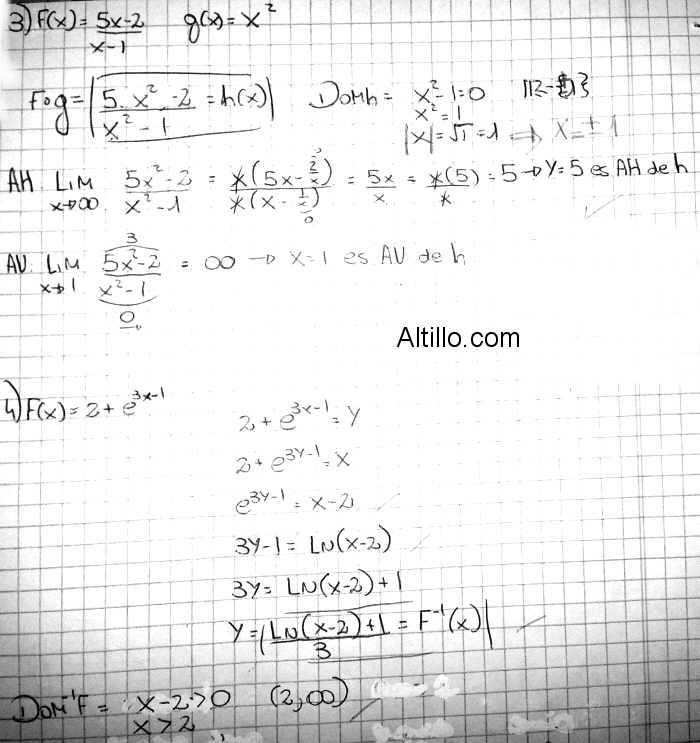 3) F(x) = 5x-2 / x-1   g(x) = x²
Fog = 5.x²-2 / x²-1 = h(x)   Dom h = x²-1=0   IR-{ }
x² = 1
|x| = √1 = 1 ⇒ x = ± 1
AH: Lim x→∞ 5x²-2 / x²-1 = x(5x - 2/x) / x(x - 1/x) = 5x / x = x(5) / x = 5 → Y=5 es AH de h
AV: Lim x→1 5x²-2 / x²-1 = ∞ → x=1 es AV de h
3
0
Altillo.com
4) F(x) = 2 + e^(3x-1)
2 + e^(3x-1) = Y
2 + e^(3Y-1) = x
e^(3Y-1) = x-2
3Y-1 = LN(x-2)
3Y = LN(x-2)+1
Y = LN(x-2)+1 / 3 = F⁻¹(x)
Dom⁻¹F = x-2>0   (2,∞)
x>2